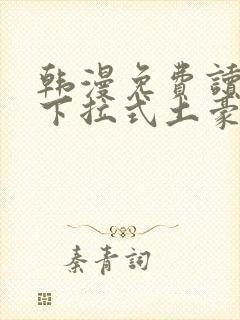 韩漫免費讀
下拉式土豪
秦青詞